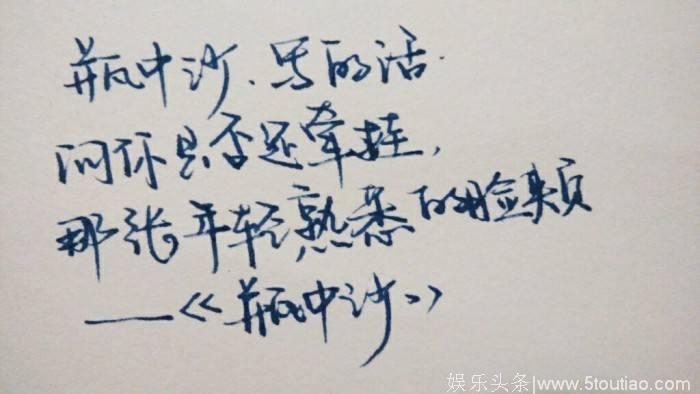 瓶中沙、写的话
问你是否还牵挂，
那张年轻熟悉的脸颊
——《瓶中沙》
娱乐头条|www.5toutiao.com